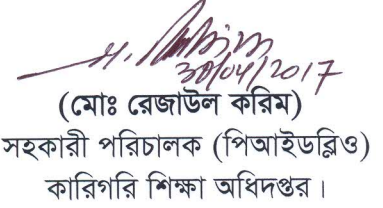 30/04/2017
(মোঃ রেজাউল করিম)
সহকারী পরিচালক (পিআইডব্লিও)
কারিগরি শিক্ষা অধিদপ্তর।